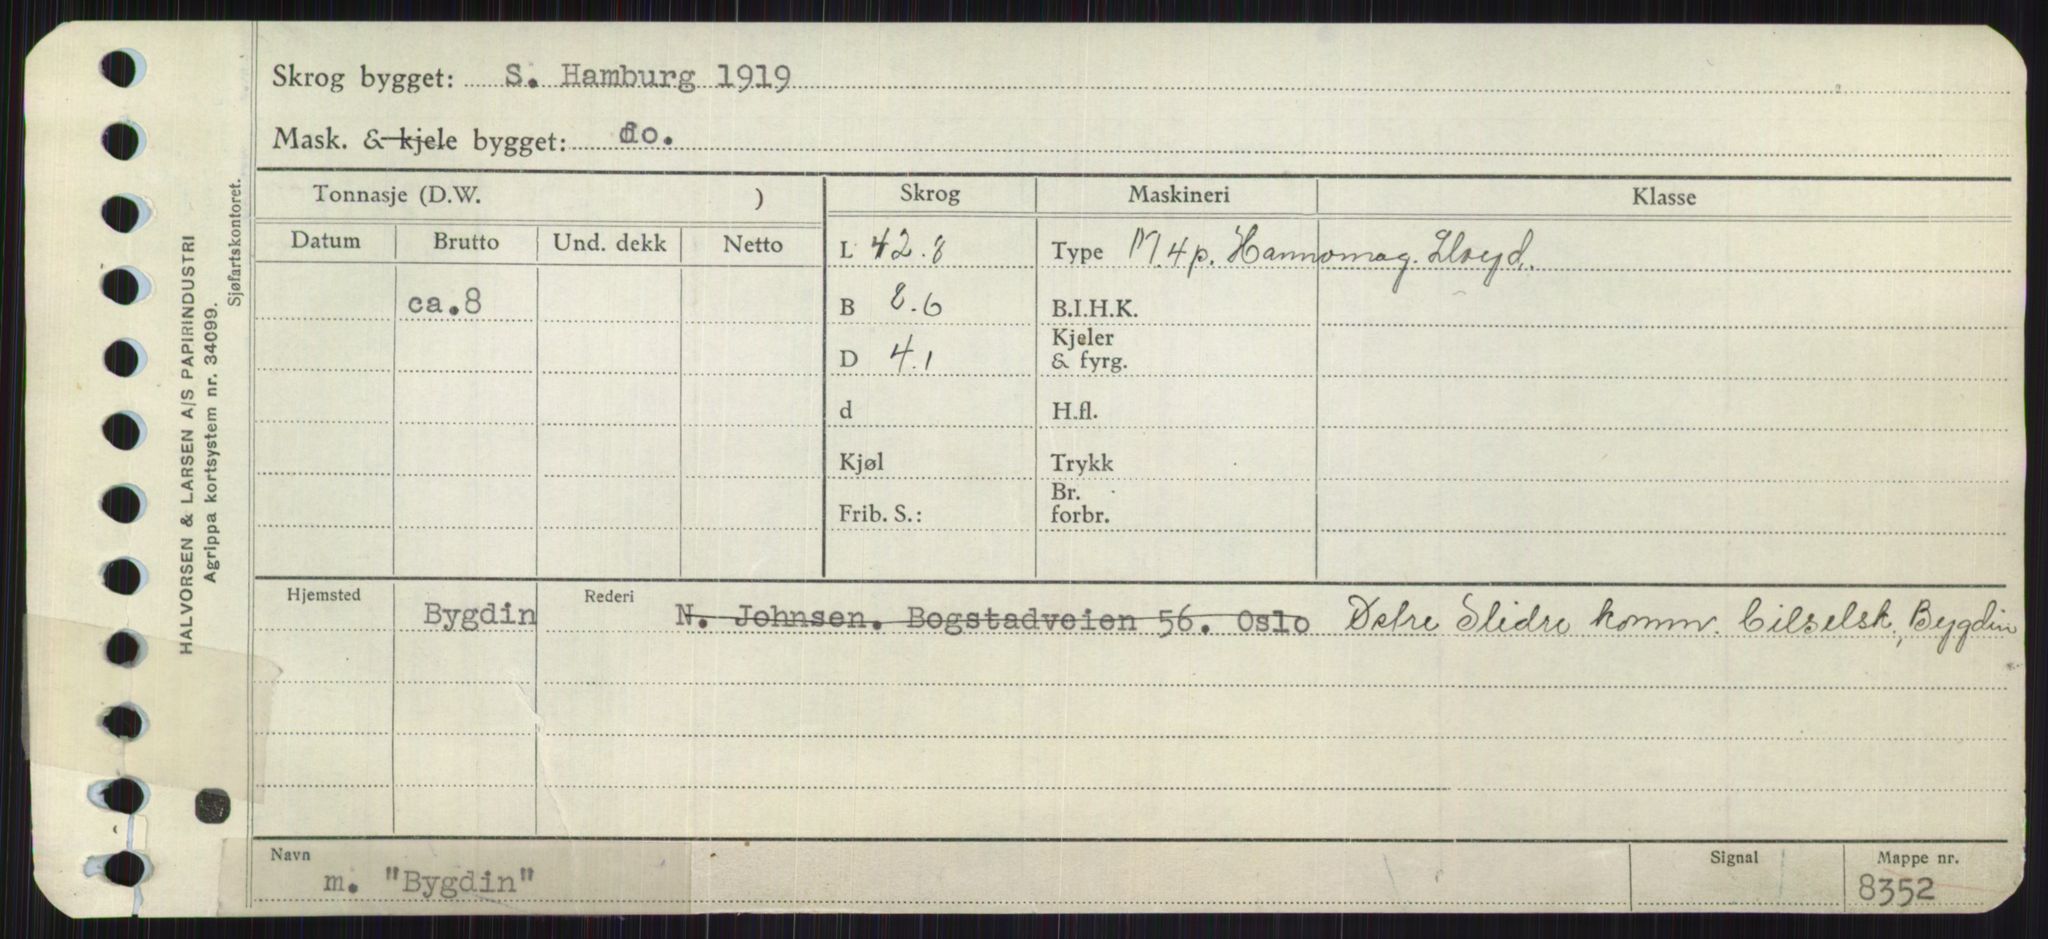 Skrog bygget: S. Hamburg 1919
Mask. & kjele bygget: do.
Tonnasje (D.W. ) Skrog Maskineri Klasse
Datum Brutto Und. dekk Netto L 42.8 Type M.4p. Hannomag. Lloyd.
ca.8 B 8.6 B.I.H.K.
D 4.1 Kjeler & fyrg.
d H.fl.
Kjøl Trykk
Frib. S.: Br. forbr.
Hjemsted Bygdin Rederi N. Johnsen. Bogstadveien 56. Oslo Østre Slidre komm. bilselsk., Bygdin
Navn Signal Mappe nr.
m. "Bygdin" 8352
HALVORSEN & LARSEN A/S PAPIRINDUSTRI
Agrippa kortsystem nr. 34099.
Sjøfartskontoret.